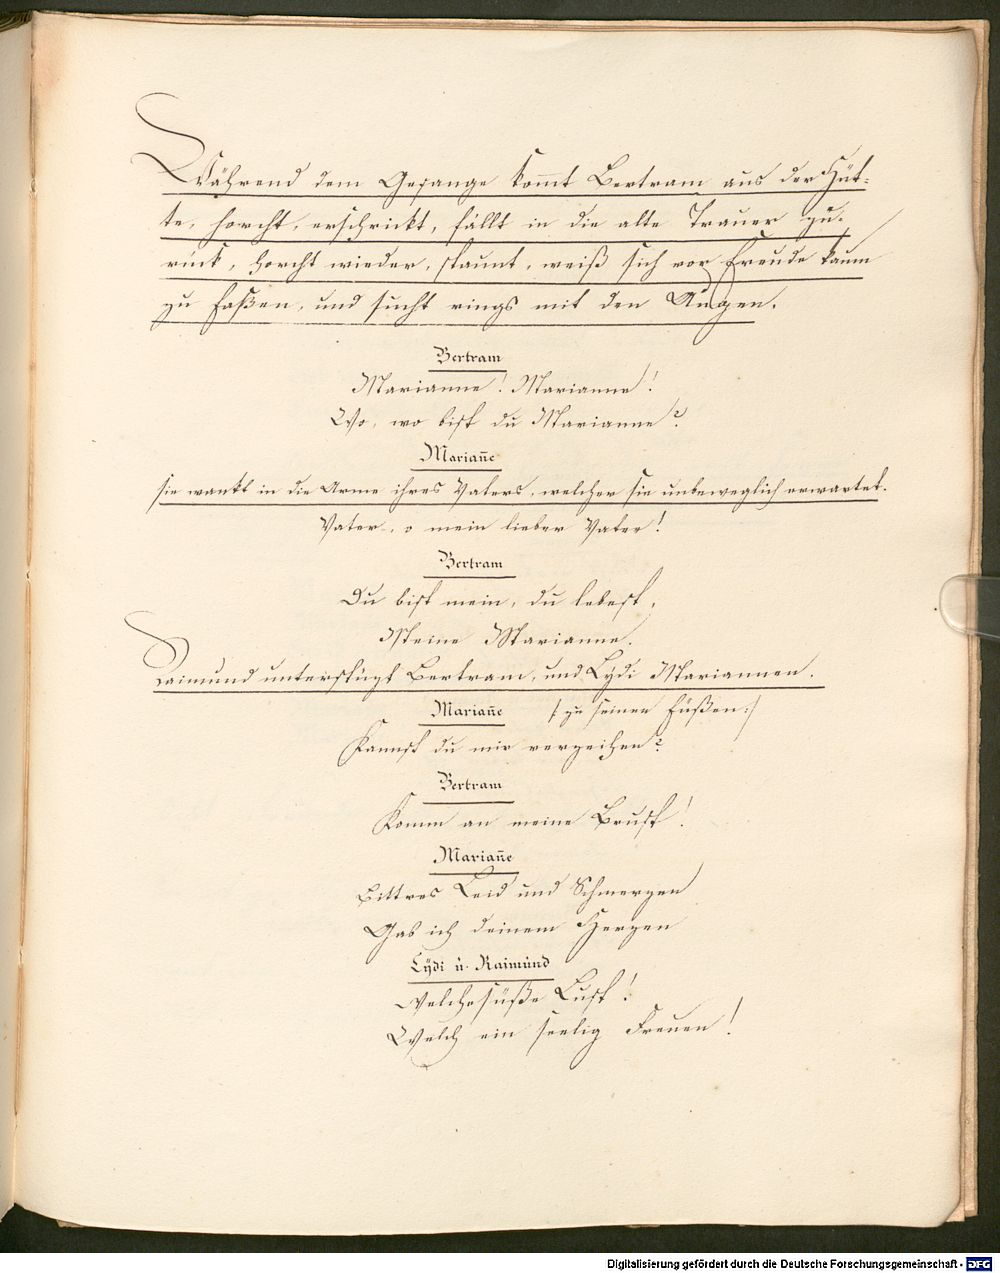 Während dem Gesange kom̄t Bertram aus der Hüt-
te, horcht, erschrickt, fällt in die alte Trauer zu-
rück, horcht wieder, staunt, weiß sich vor Freude kaum
zu faßen, und sucht rings mit den Augen.
Bertram
Marianne! Marianne!
Wo, wo bist du Marianne?
Marian̄e
sie wankt in die Arme ihres Vaters, welcher sie unbeweglich erwartet.
Vater, o mein lieber Vater!
Bertram
Du bist mein, du lebest,
Meine Marianne.
Raimund unterstüzt Bertram, und Lydi Mariannen.
Marian̄e /: zu seinen Füßen :/
Kannst du mir verzeihen?
Bertram
Komm an meine Brust!
Marian̄e
Bittres Leid und Schmerzen
Gab ich deinem Herzen
Lÿdi u. Raimund
Welche süße Lust!
Welch ein seelig Freuen!
Digitalisierung gefördert durch die Deutsche Forschungsgemeinschaft - DFG